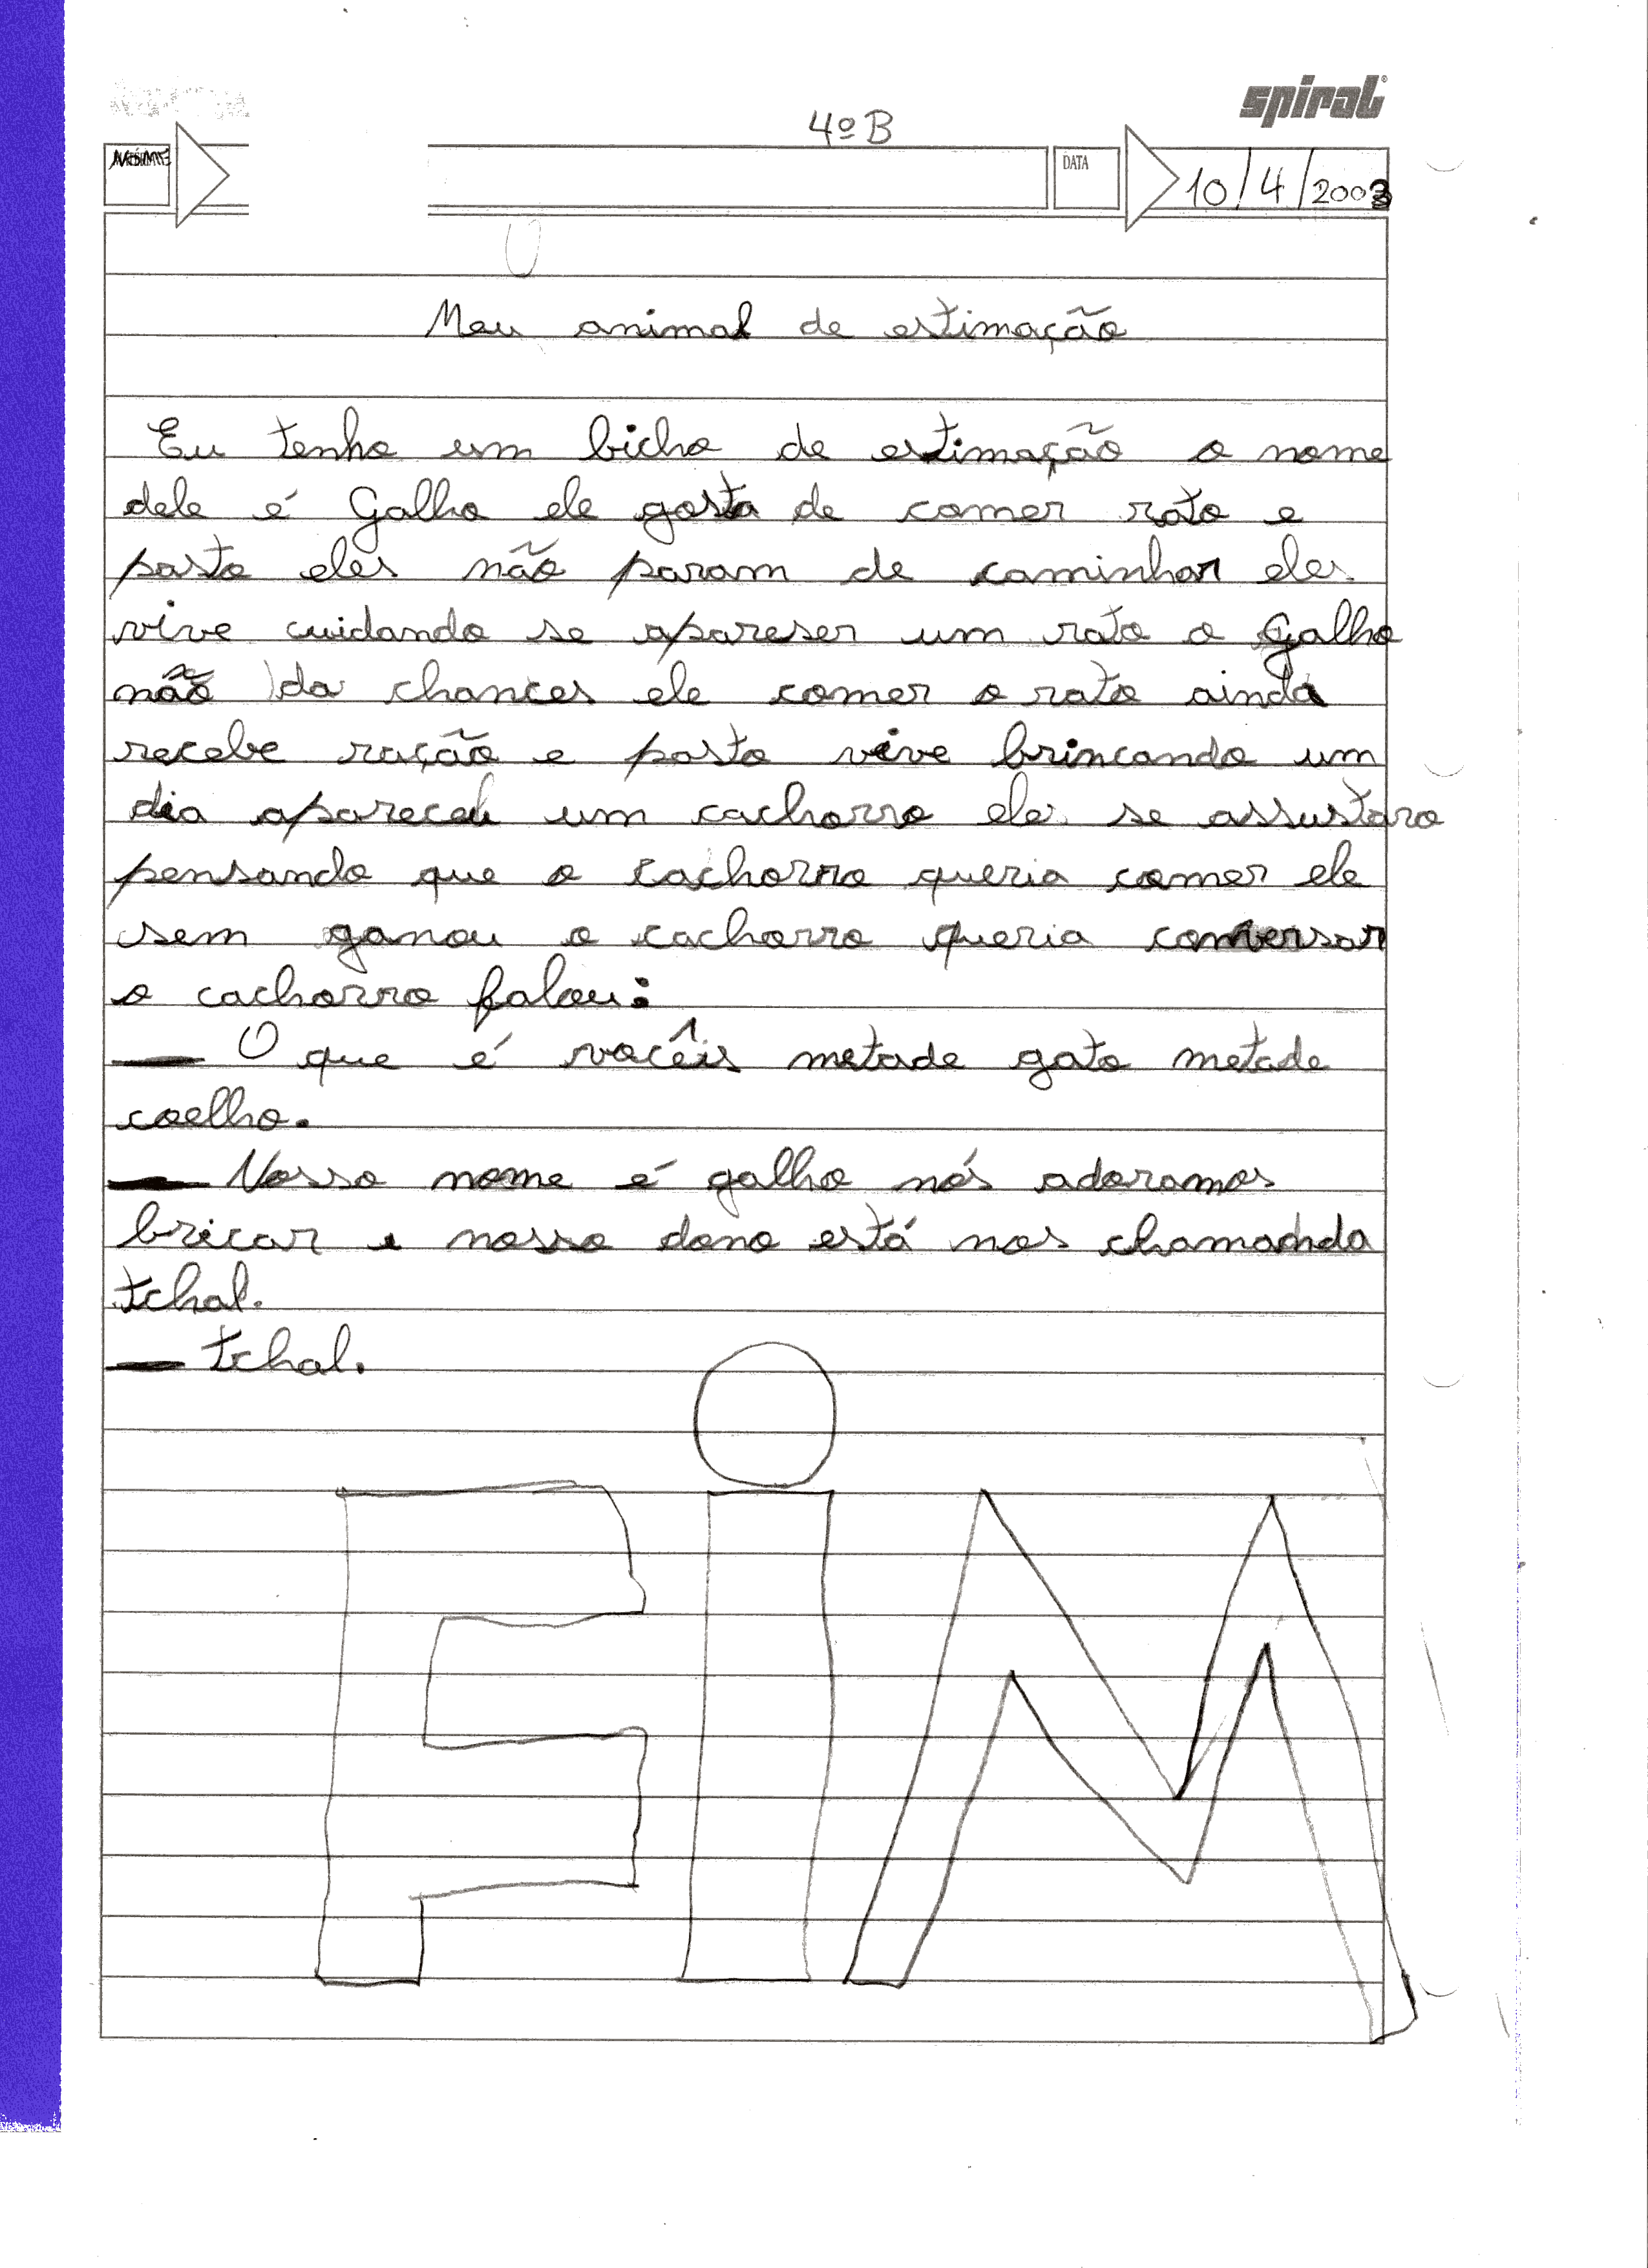 spiral
4º B
DATA
10/4/2003
Meu animal de estimação
Eu tenho um bicho de estimação o nome
dele é Galho ele gosta de comer rato e
pasto eles não param de caminhar eles
vive cuidando se apareser um rato o Galho
não da chances ele comer o rato ainda
recebe ração e pasto vive brincando um
dia apareceu um cachorro eles se assustaro
pensando que o cachorro queria comer ele
sem ganou o cachorro queria conversar
o cachorro falou:
— O que é vocêis metade gato metade
coelho.
— Nosso nome é galho nós adoramos
bricar e nosso dono está nos chamando
tchal.
— tchal.
FiM